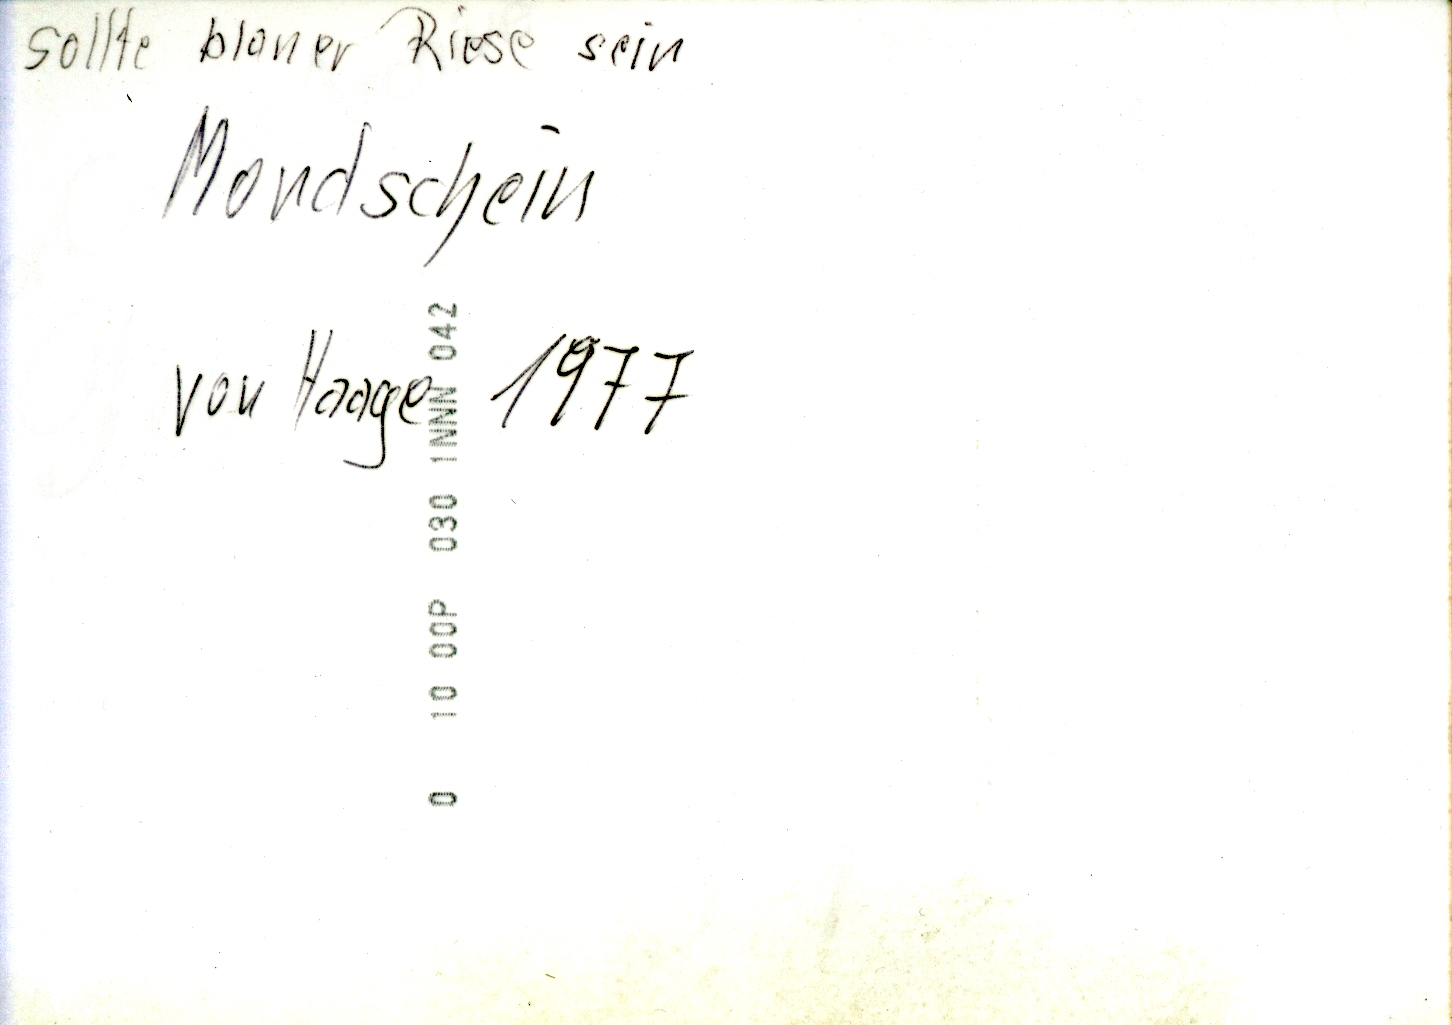 sollte blauer Riese sein
Mondschein
von Haage 1977
0 10 00P 030 1NNN 042